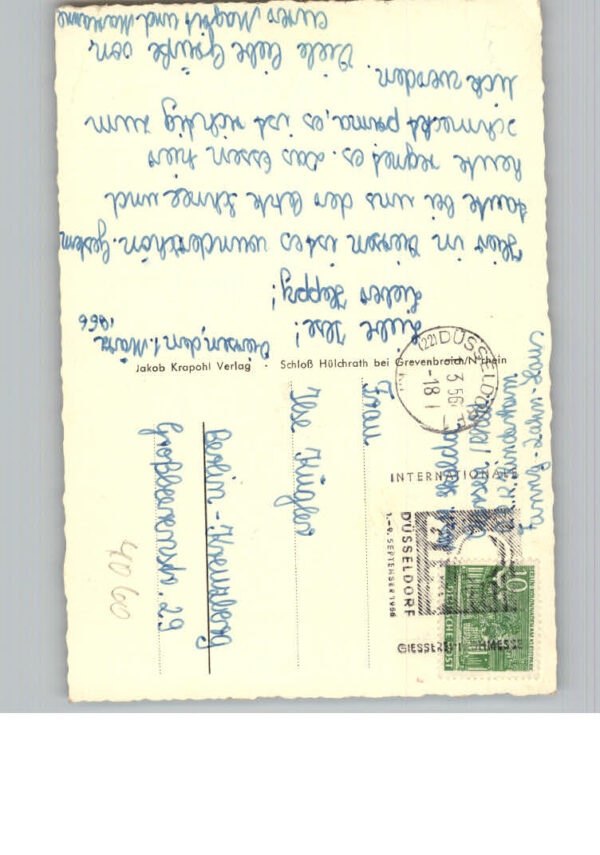 Viersen, den 1. März
1956
Liebe Ilse!
Lieber Heppy!
Hier in Viersen ist es wunderschön. Gestern
taute bei uns der letzte Schnee und
heute regnet es. Das Essen hier
schmeckt prima, es ist richtig zum
dick werden.
Viele liebe Grüße von
eurer Margrit und Marianne
Jakob Krapohl Verlag · Schloß Hülchrath bei Grevenbroich/N'rhein
Frau
Ilse Kügler
Berlin-Kreuzberg
Großbeerenstr. 29
4060
(22) DÜSSELDORF
3.56
-18
INTERNATIONALE
DÜSSELDORF
1.-9. SEPTEMBER 1956
GIESSEREI FACHMESSE
10
DEUTSCHE POST